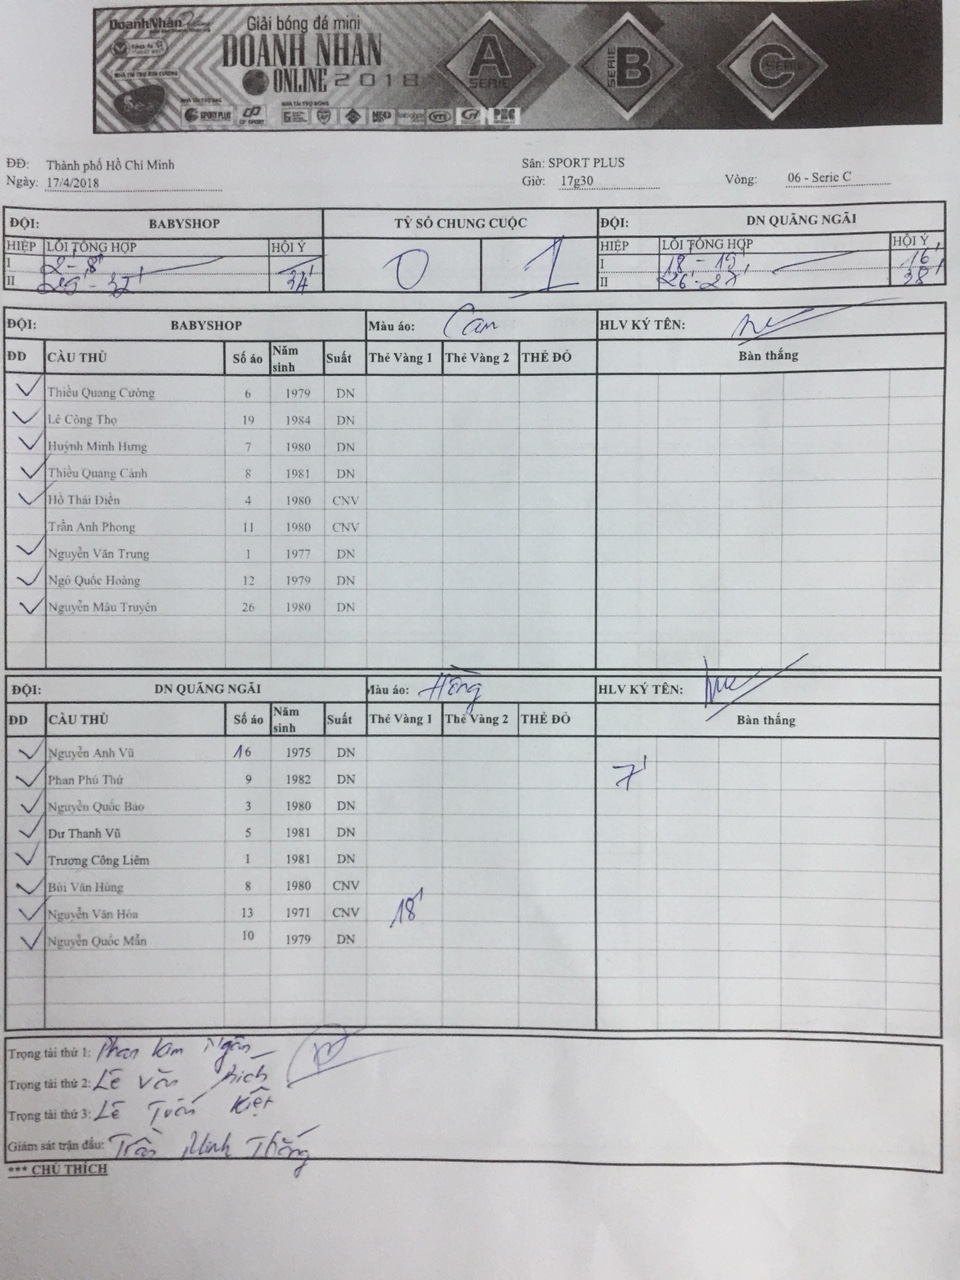 DoanhNhân
Giải bóng đá mini
DOANH NHAN
ONLINE 2018
NHÀ TÀI TRỢ KIM CƯƠNG
SPORT PLUS
A SERIE
SERIE B
C SERIE
ĐĐ: Thành phố Hồ Chí Minh Sân: SPORT PLUS
Ngày: 17/4/2018 Giờ: 17g30 Vòng: 06 - Serie C
ĐỘI: BABYSHOP TỶ SỐ CHUNG CUỘC ĐỘI: DN QUÃNG NGÃI
HIỆP LỖI TỔNG HỢP HỘI Ý 0 1 HIỆP LỖI TỔNG HỢP HỘI Ý
I 2' - 8' I 18' - 19' 16'
II 29' - 32' 34' II 26' - 27' 38'
ĐỘI: BABYSHOP Màu áo: Cam HLV KÝ TÊN:
ĐD CẦU THỦ Số áo Năm sinh Suất Thẻ Vàng 1 Thẻ Vàng 2 THẺ ĐỎ Bàn thắng
Thiều Quang Cường 6 1979 DN
Lê Công Thọ 19 1984 DN
Huỳnh Minh Hưng 7 1980 DN
Thiều Quang Cảnh 8 1981 DN
Hồ Thái Điền 4 1980 CNV
Trần Anh Phong 11 1980 CNV
Nguyễn Văn Trung 1 1977 DN
Ngô Quốc Hoàng 12 1979 DN
Nguyễn Mậu Truyên 26 1980 DN
ĐỘI: DN QUÃNG NGÃI Màu áo: Hồng HLV KÝ TÊN:
ĐD CẦU THỦ Số áo Năm sinh Suất Thẻ Vàng 1 Thẻ Vàng 2 THẺ ĐỎ Bàn thắng
Nguyễn Anh Vũ 16 1975 DN
Phan Phú Thứ 9 1982 DN 7'
Nguyễn Quốc Bảo 3 1980 DN
Dư Thanh Vũ 5 1981 DN
Trương Công Liêm 1 1981 DN
Bùi Văn Hùng 8 1980 CNV
Nguyễn Văn Hóa 13 1971 CNV 18'
Nguyễn Quốc Mẫn 10 1979 DN
Trọng tài thứ 1: Phan Kim Ngân
Trọng tài thứ 2: Lê Văn Bích
Trọng tài thứ 3: Lê Tuấn Kiệt
Giám sát trận đấu: Trần Minh Thắng
*** CHÚ THÍCH